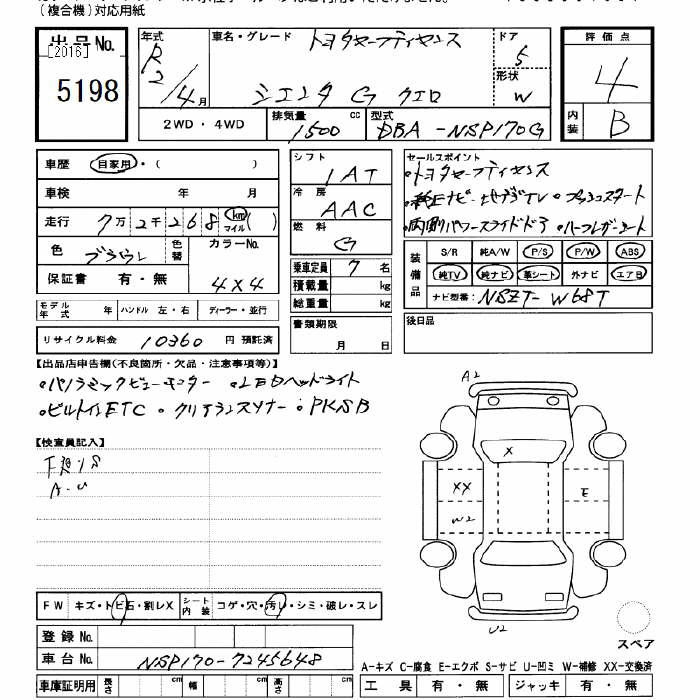 (複合機)対応用紙
出品No.
[2016]
5198
年式
R2/4月
車名・グレード
トヨタセーフティセンス
シエンタ G クエロ
ドア
5
形状
W
評価点
4
内装
B
2WD・4WD
排気量
1500 cc
型式
DBA-NSP170G
車歴 自家用・( )
車検 年 月
走行 7万2千268 km マイル ( )
色 ブラウン
色替
カラーNo.
4X4
保証書 有・無
シフト
1AT
冷房
AAC
燃料
G
乗車定員 7名
積載量 kg
総重量 kg
書類期限
月 日
セールスポイント
・トヨタセーフティセンス
・純正ナビ・地デジTV・プッシュスタート
・両側パワースライドドア・ハーフレザーシート
装備品
S/R 純A/W P/S P/W ABS
純TV 純ナビ 革シート 外ナビ エアB
ナビ型番: NSZT-W68T
モデル年式 年 ハンドル 左・右 ディーラー・並行
リサイクル料金 10360 円 預託済
後日品
【出品店申告欄(不良箇所・欠品・注意事項等)】
・パノラミックビューモニター ・LEDヘッドライト
・ビルトインETC ・クリアランスソナー ・PKSB
【検査員記入】
下廻りS
A-U
A2
X
XX
W2
E
U2
スペア
FW キズ・トビ石・割レX
シート内装 コゲ・穴・汚レ・シミ・破レ・スレ
登録No.
車台No. NSP170-7245648
車庫証明用 長さ cm 幅 cm 高さ cm
A-キズ C-腐食 E-エクボ S-サビ U-凹ミ W-補修 XX-交換済
工具 有・無 ジャッキ 有・無